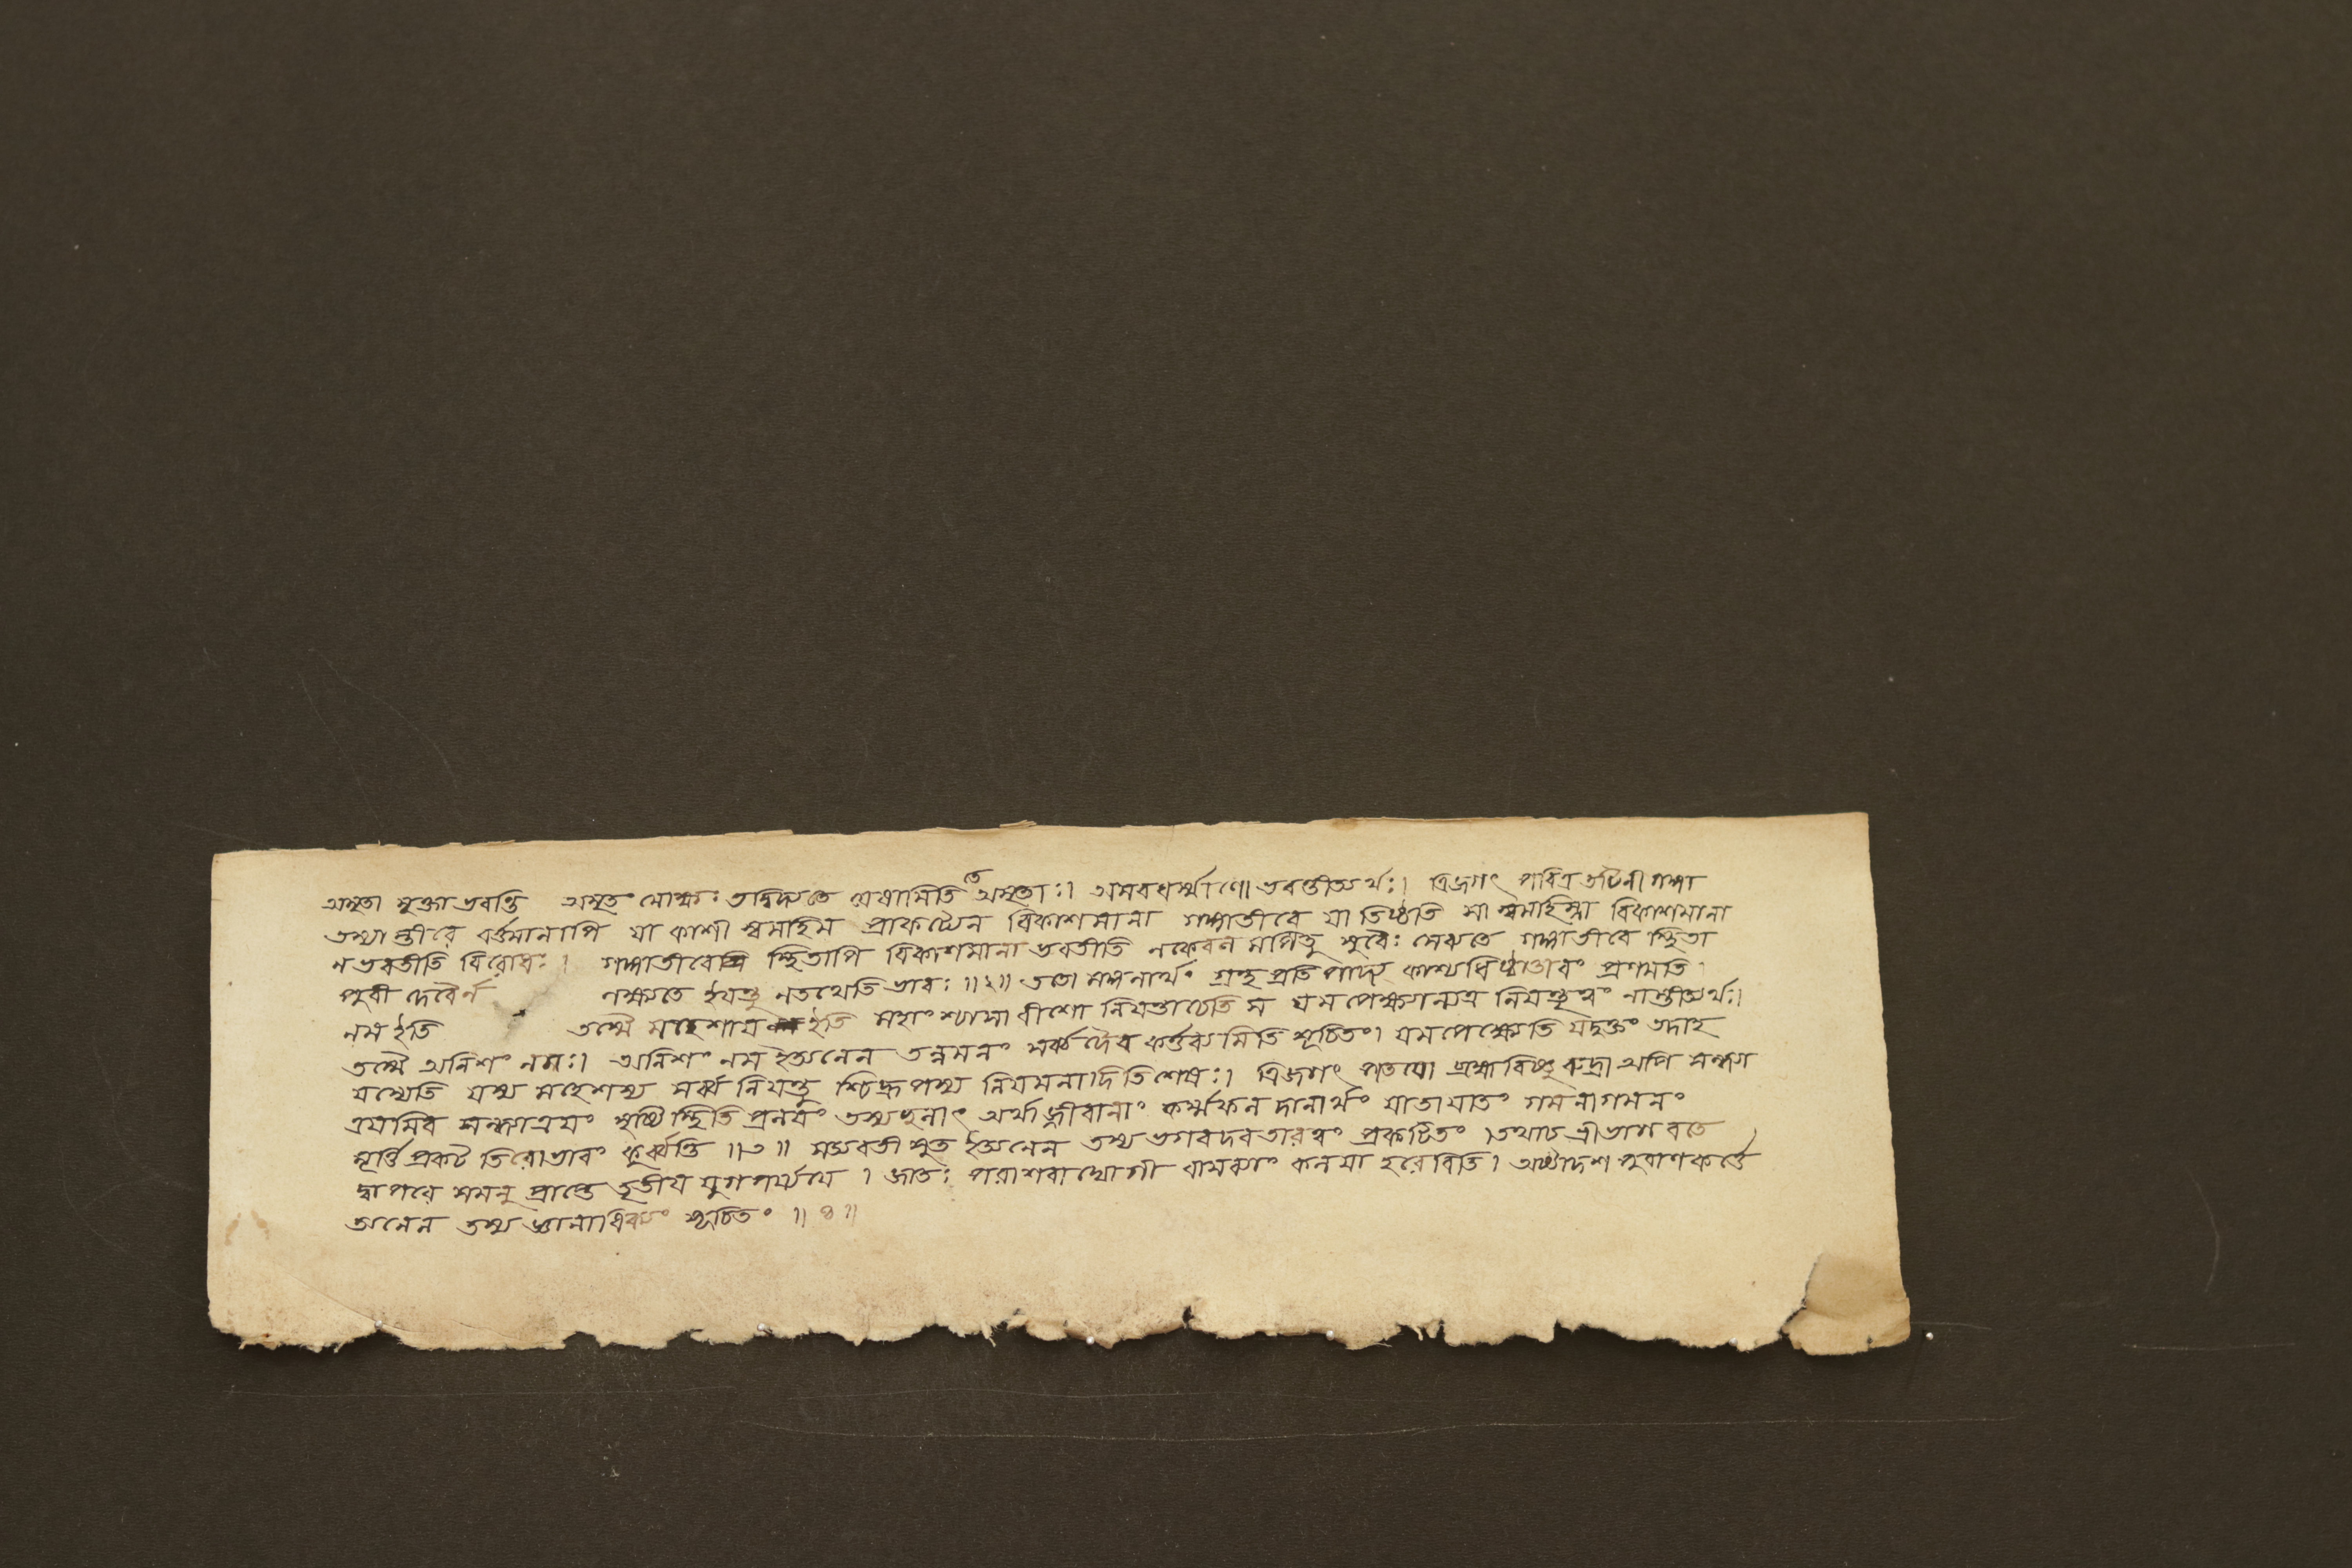 অমৃতা মুক্তা ভবন্তি অমৃতং মোক্ষঃ তদ্বিদ্যতে যেষামিতি তে অমৃতাঃ। অমরধর্ম্মাণো ভবন্তীত্যর্থঃ। ত্রিজগৎ পবিত্র তটিনী গঙ্গা
তস্যাস্তীরে বর্ত্তমানাপি যা কাশী স্বমহিম প্রাকট্যেন বিকাশমানা গঙ্গাতীরে যা তিষ্ঠতি সা স্বমহিম্না বিকাশমানা
ন ভবতীতি বিরোধঃ। গঙ্গাতীরে স্থিতাপি বিকাশমানা ভবতীতি ন কেবল সুরৈঃ সেব্যতে গঙ্গাতীরে স্থিতা
পুরী দেবৈর্ন লক্ষ্যতে ইয়ন্তু ন তথেতি ভাবঃ ॥২॥ ততো মঙ্গলার্থং গ্রন্থ প্রতিপাদ্য কাশ্যধিষ্ঠাতারং প্রণমতি
নম ইতি তস্মৈ মহেশায় ইতি মহাংশ্চাসাবীশো নিয়ন্তাচেতি স যমপেক্ষ্যান্যত্র নিয়ন্তৃত্বং নাস্তীত্যর্থঃ।
তস্মৈ অনিশং নমঃ। অনিশং নম ইত্যনেন তন্নমনং সর্ব্বদৈব কর্ত্তব্যমিতি সূচিতং। যমপেক্ষ্যেতি যদুক্তং তদাহ
যস্যেতি যস্য মহেশস্য সর্ব্ব নিয়ন্তু শ্চিদ্রূপস্য নিয়মনাদিতিশেষঃ। ত্রিজগৎ পতয়ো ব্রহ্মাবিষ্ণু রুদ্রা অপি সন্ধ্যা
ত্রয়মিব সন্ধ্যাত্রয়ং সৃষ্টি স্থিতি প্রলয়ং তস্য অর্থাজ্জীবানাং কর্ম্মফল দানার্থং যাতায়াতং গমনাগমনং
মূর্ত্তি প্রকট তিরোভাবং কুর্ব্বন্তি ॥৩॥ সত্যবতী সুত ইত্যনেন তস্য ভগবদবতারত্বং প্রকটিতং। তথাচ শ্রীভাগবতে
দ্বাপরে সমনু প্রাপ্তে তৃতীয় যুগপর্য্যয়ে। জাতঃ পরাশরাদ্যোগী বাসব্যাং কলয়া হরেরিতি। অষ্টাদশ পুরাণকর্ত্তে
অনেন তস্য জ্ঞানাধিক্যং সূচিতং ॥৪॥